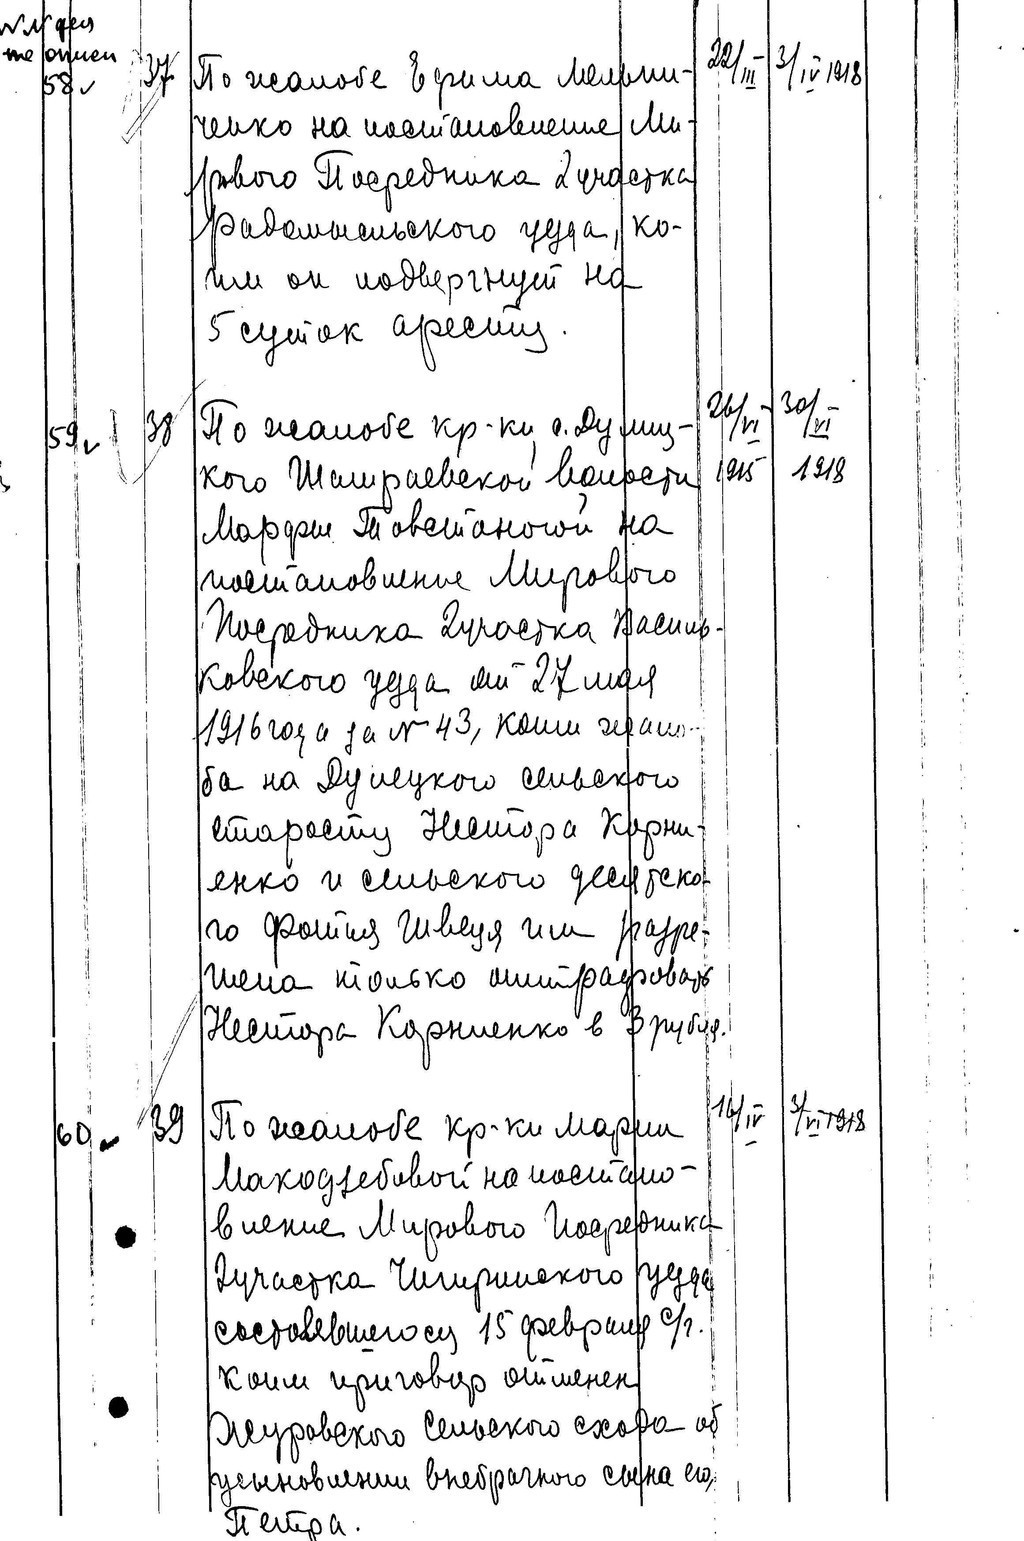 58 37 По жалобе Ефима Мельни- 22/III 3/IV 1918
ченко на постановление Ми-
рового Посредника 2 участка
Радомысльского уезда, ко-
им он подвергнут на
5 суток аресту.
59 38 По жалобе кр-ки с. Дулиц- 26/VI 30/VI
кого Шамраевской волости 1915 1918
Марфы Товстоногой на
постановление Мирового
Посредника 2 участка Василь-
ковского уезда от 27 мая
1916 года за № 43, коим жало-
ба на Дулецкого сельского
старосту Нестора Корни-
енко и сельского десятско-
го Фотия Швеця им разре-
шена только оштрафовать
Нестора Корниенко в 3 рубля.
60 39 По жалобе кр-ки Марии 16/IV 3/VI 1918
Макодзебовой на постано-
вление Мирового Посредника
2 участка Чигиринского уезда
состоявшегося 15 февраля с/г.
коим приговор отменен
Журовского Сельского схода об
усыновлении внебрачного сына его,
Петра.